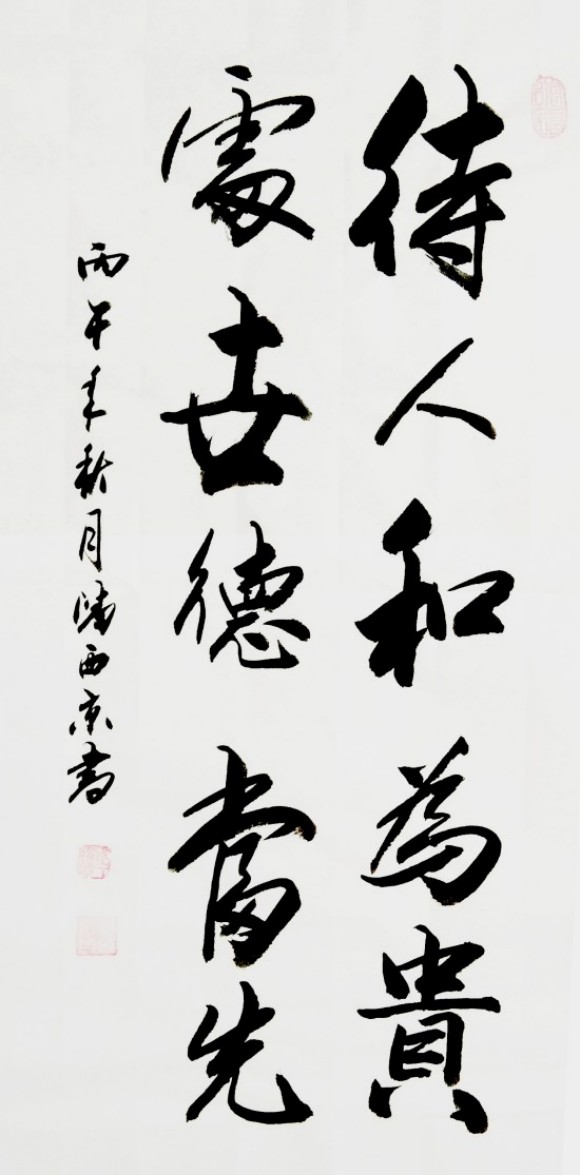 待人和為貴
處世德當先
丙午年秋月陽西京書